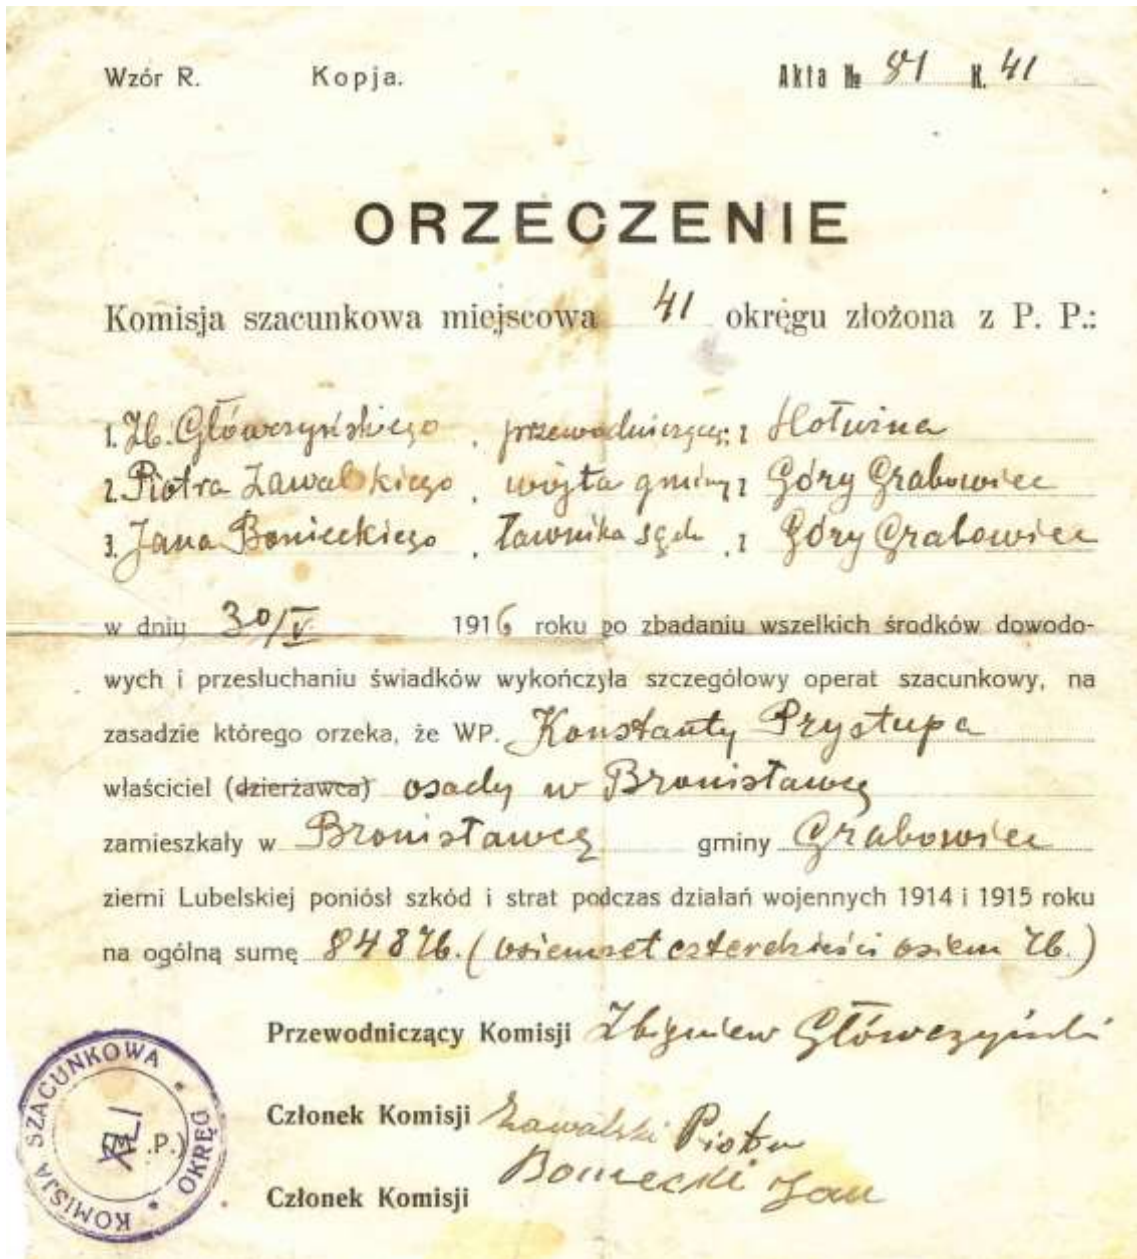 Wzór R. Kopja. Akta № 81 K. 41
ORZECZENIE
Komisja szacunkowa miejscowa 41 okręgu złożona z P. P.:
1. Zb. Główczyńskiego, przewodniczący: z
2. Piotra Zawalskiego, wójta gminy z Góry Grabowiec
3. Jana Bonieckiego, ławnika sądu, z Góry Grabowiec
w dniu 30/V 1916 roku po zbadaniu wszelkich środków dowodo-
wych i przesłuchaniu świadków wykończyła szczegółowy operat szacunkowy, na
zasadzie którego orzeka, że WP. Konstanty Przystupa
właściciel (dzierżawca) osady w Bronisławcę
zamieszkały w Bronisławcę gminy Grabowiec
ziemi Lubelskiej poniósł szkód i strat podczas działań wojennych 1914 i 1915 roku
na ogólną sumę 848 rb. (osiemset czterdzieści osiem rb.)
Przewodniczący Komisji Zbigniew Główczyński
Członek Komisji Zawalski Piotr
Członek Komisji Boniecki Jan
KOMISJA SZACUNKOWA * OKRĘG *
XLI
.P.)